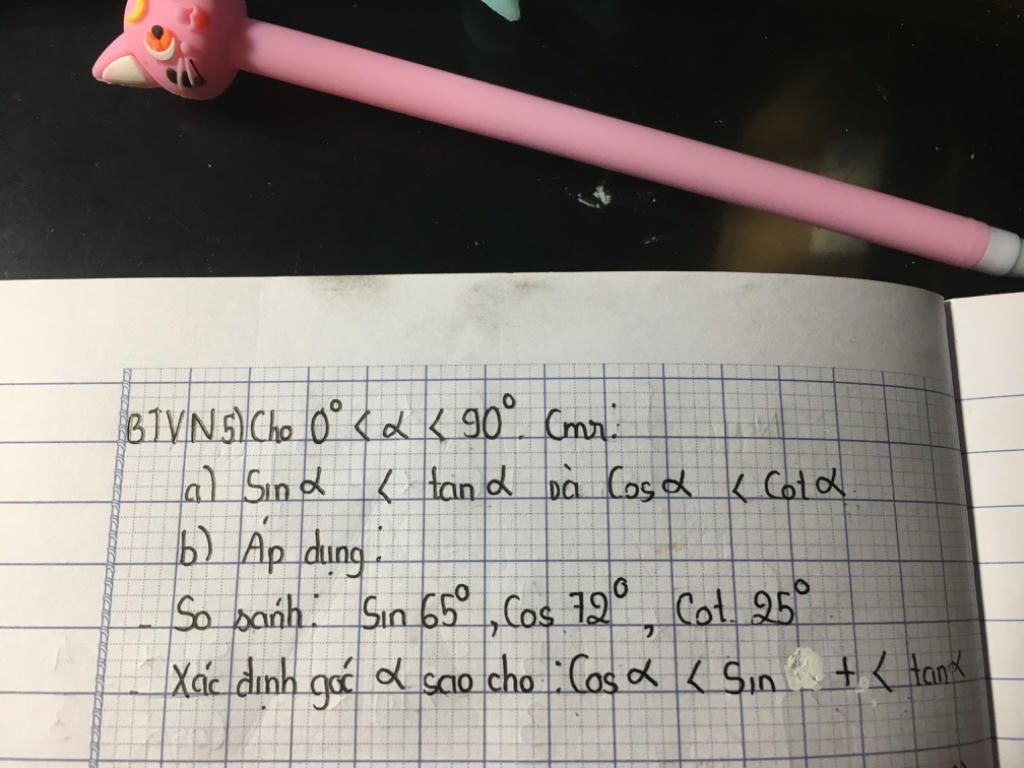 BTVN5) Cho 0° < α < 90°. Cmr:
a) Sin α < tan α và Cos α < Cot α
b) Áp dụng:
- So sánh: Sin 65°, Cos 72°, Cot. 25°
- Xác định góc α sao cho: Cos α < Sin + < tan α